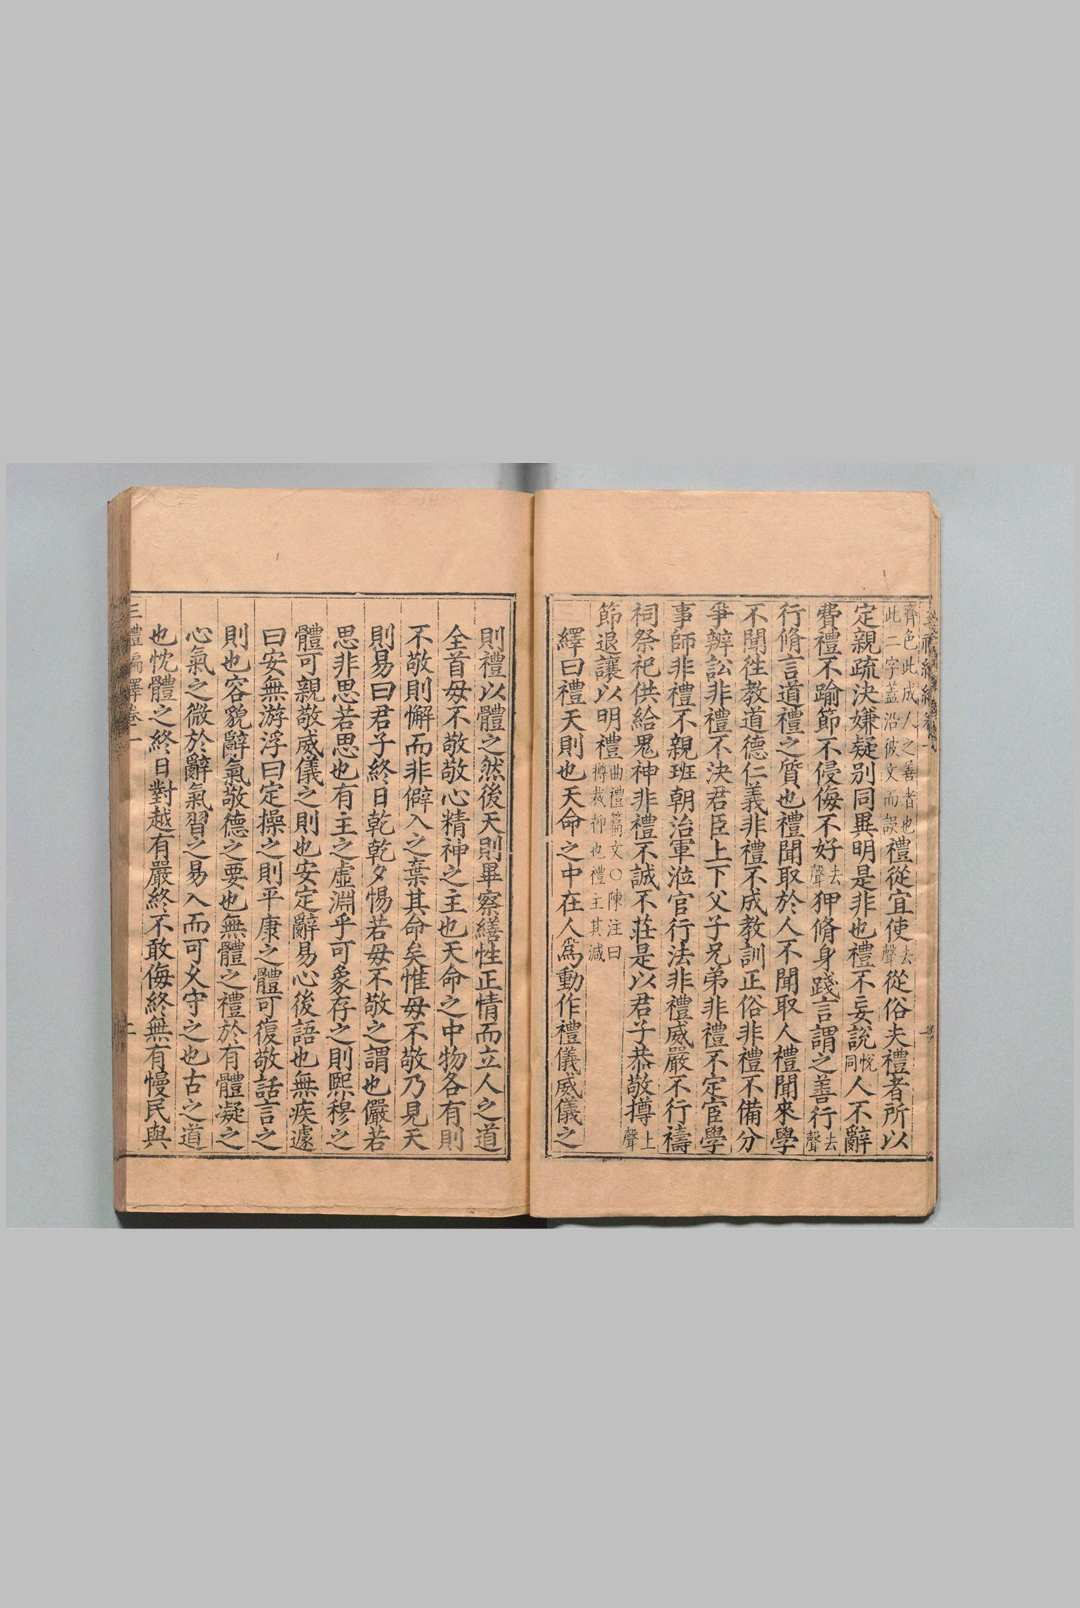 齊色此成人之善者也
此二字蓋沿彼文而誤禮從宜使去聲從俗夫禮者所以
定親疏決嫌疑别同異明是非也禮不妄說悅同人不辭
費禮不踰節不侵侮不好去聲狎脩身踐言謂之善行去聲
行脩言道禮之質也禮聞取於人不聞取人禮聞來學
不聞徃教道德仁義非禮不成教訓正俗非禮不備分
爭辨訟非禮不決君臣上下父子兄弟非禮不定宦學
事師非禮不親班朝治軍涖官行法非禮威嚴不行禱
祠祭祀供給鬼神非禮不誠不莊是以君子恭敬撙上聲
節退讓以明禮曲禮篇文○陳注曰撙裁抑也禮主其減
繹曰禮天則也天命之中在人爲動作禮儀威儀之
則禮以體之然後天則畢察綏性正情而立人之道
全首毋不敬敬心精神之主也天命之中物各有則
不敬則懈而非僻入之棄其命矣惟毋不敬乃見天
則易曰君子終日乾乾夕惕若毋不敬之謂也儼若
思非思若思也有主之虛淵乎可象存之則熙穆之
體可親敬威儀之則也安定辭易心後語也無疾遽
曰安無游浮曰定操之則平康之體可復敬話言之
則也容貌辭氣敬德之要也無體之禮於有體凝之
心氣之微於辭氣習之易入而可久守之也古之道
也忱體之終日對越有嚴終不敢侮終無有慢民與
三禮編繹卷一